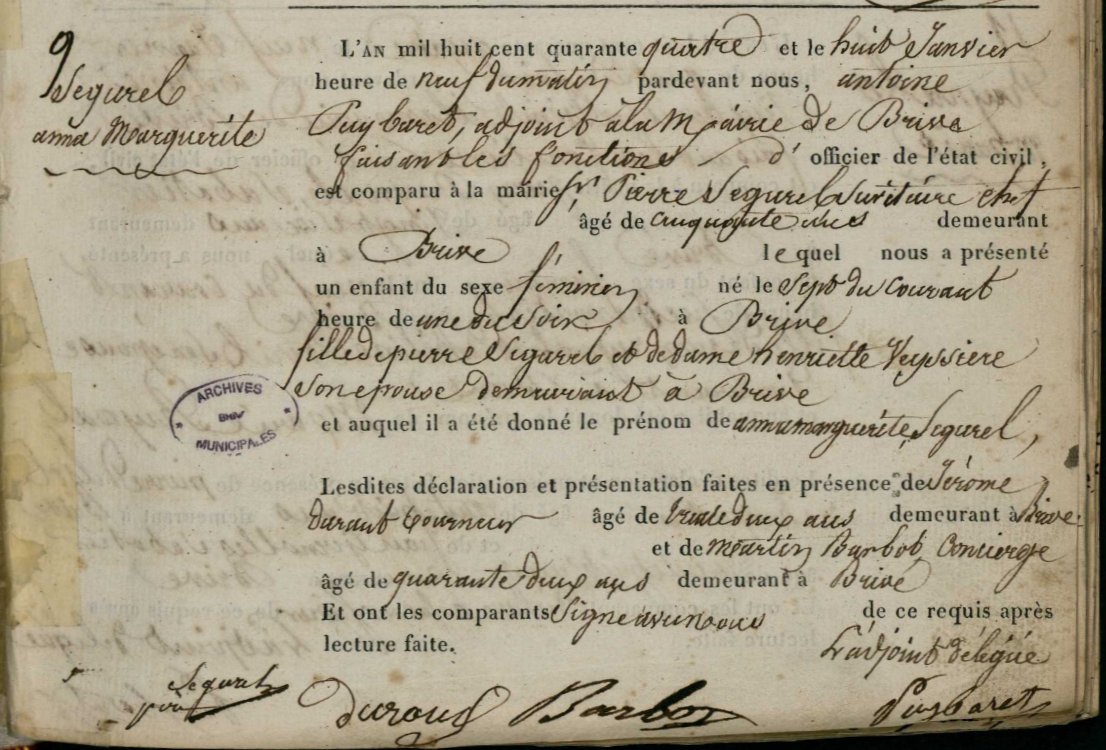 9
Segurel
anna Marguerite
L'AN mil huit cent quarante quatre et le huit Janvier
heure de neuf du matin pardevant nous, antoine
Puybaret, adjoint à la Mairie de Brive
faisant les fonctions d' officier de l'état civil,
est comparu à la mairie Sr Pierre Segurel chef
âgé de cinquante ans demeurant
à Brive lequel nous a présenté
un enfant du sexe féminin né le Sept du Courant
heure de une du Soir à Brive
fille de pierre Segurel et de dame henriette Veyssiere
son epouse demeurant à Brive
ARCHIVES
BRIVE
MUNICIPALES
et auquel il a été donné le prénom de anna marguerite Segurel,
Lesdites déclaration et présentation faites en présence de Jérome
Durant tourneur âgé de trente deux ans demeurant à Brive
et de martin Barbot, Concierge
âgé de quarante deux ans demeurant à Brive
Et ont les comparants Signé avec nous de ce requis après
lecture faite.
L'adjoint délégué
Segurel
père
Durand Barbot Puybaret